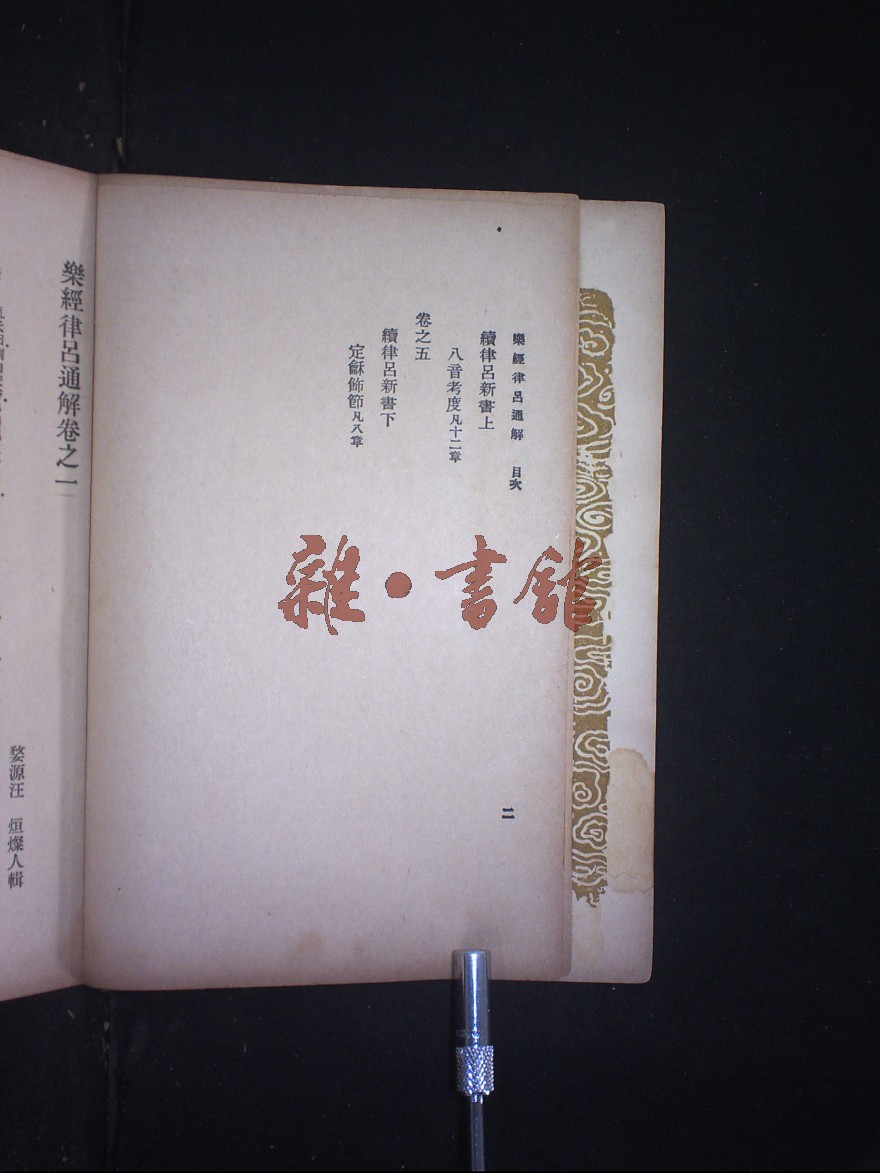 樂經律呂通解 目次
續律呂新書上
八音考度凡十二章
卷之五
續律呂新書下
定龢飾節凡八章
二
樂經律呂通解卷之一
婺源汪 烜燦人輯
雜·書館